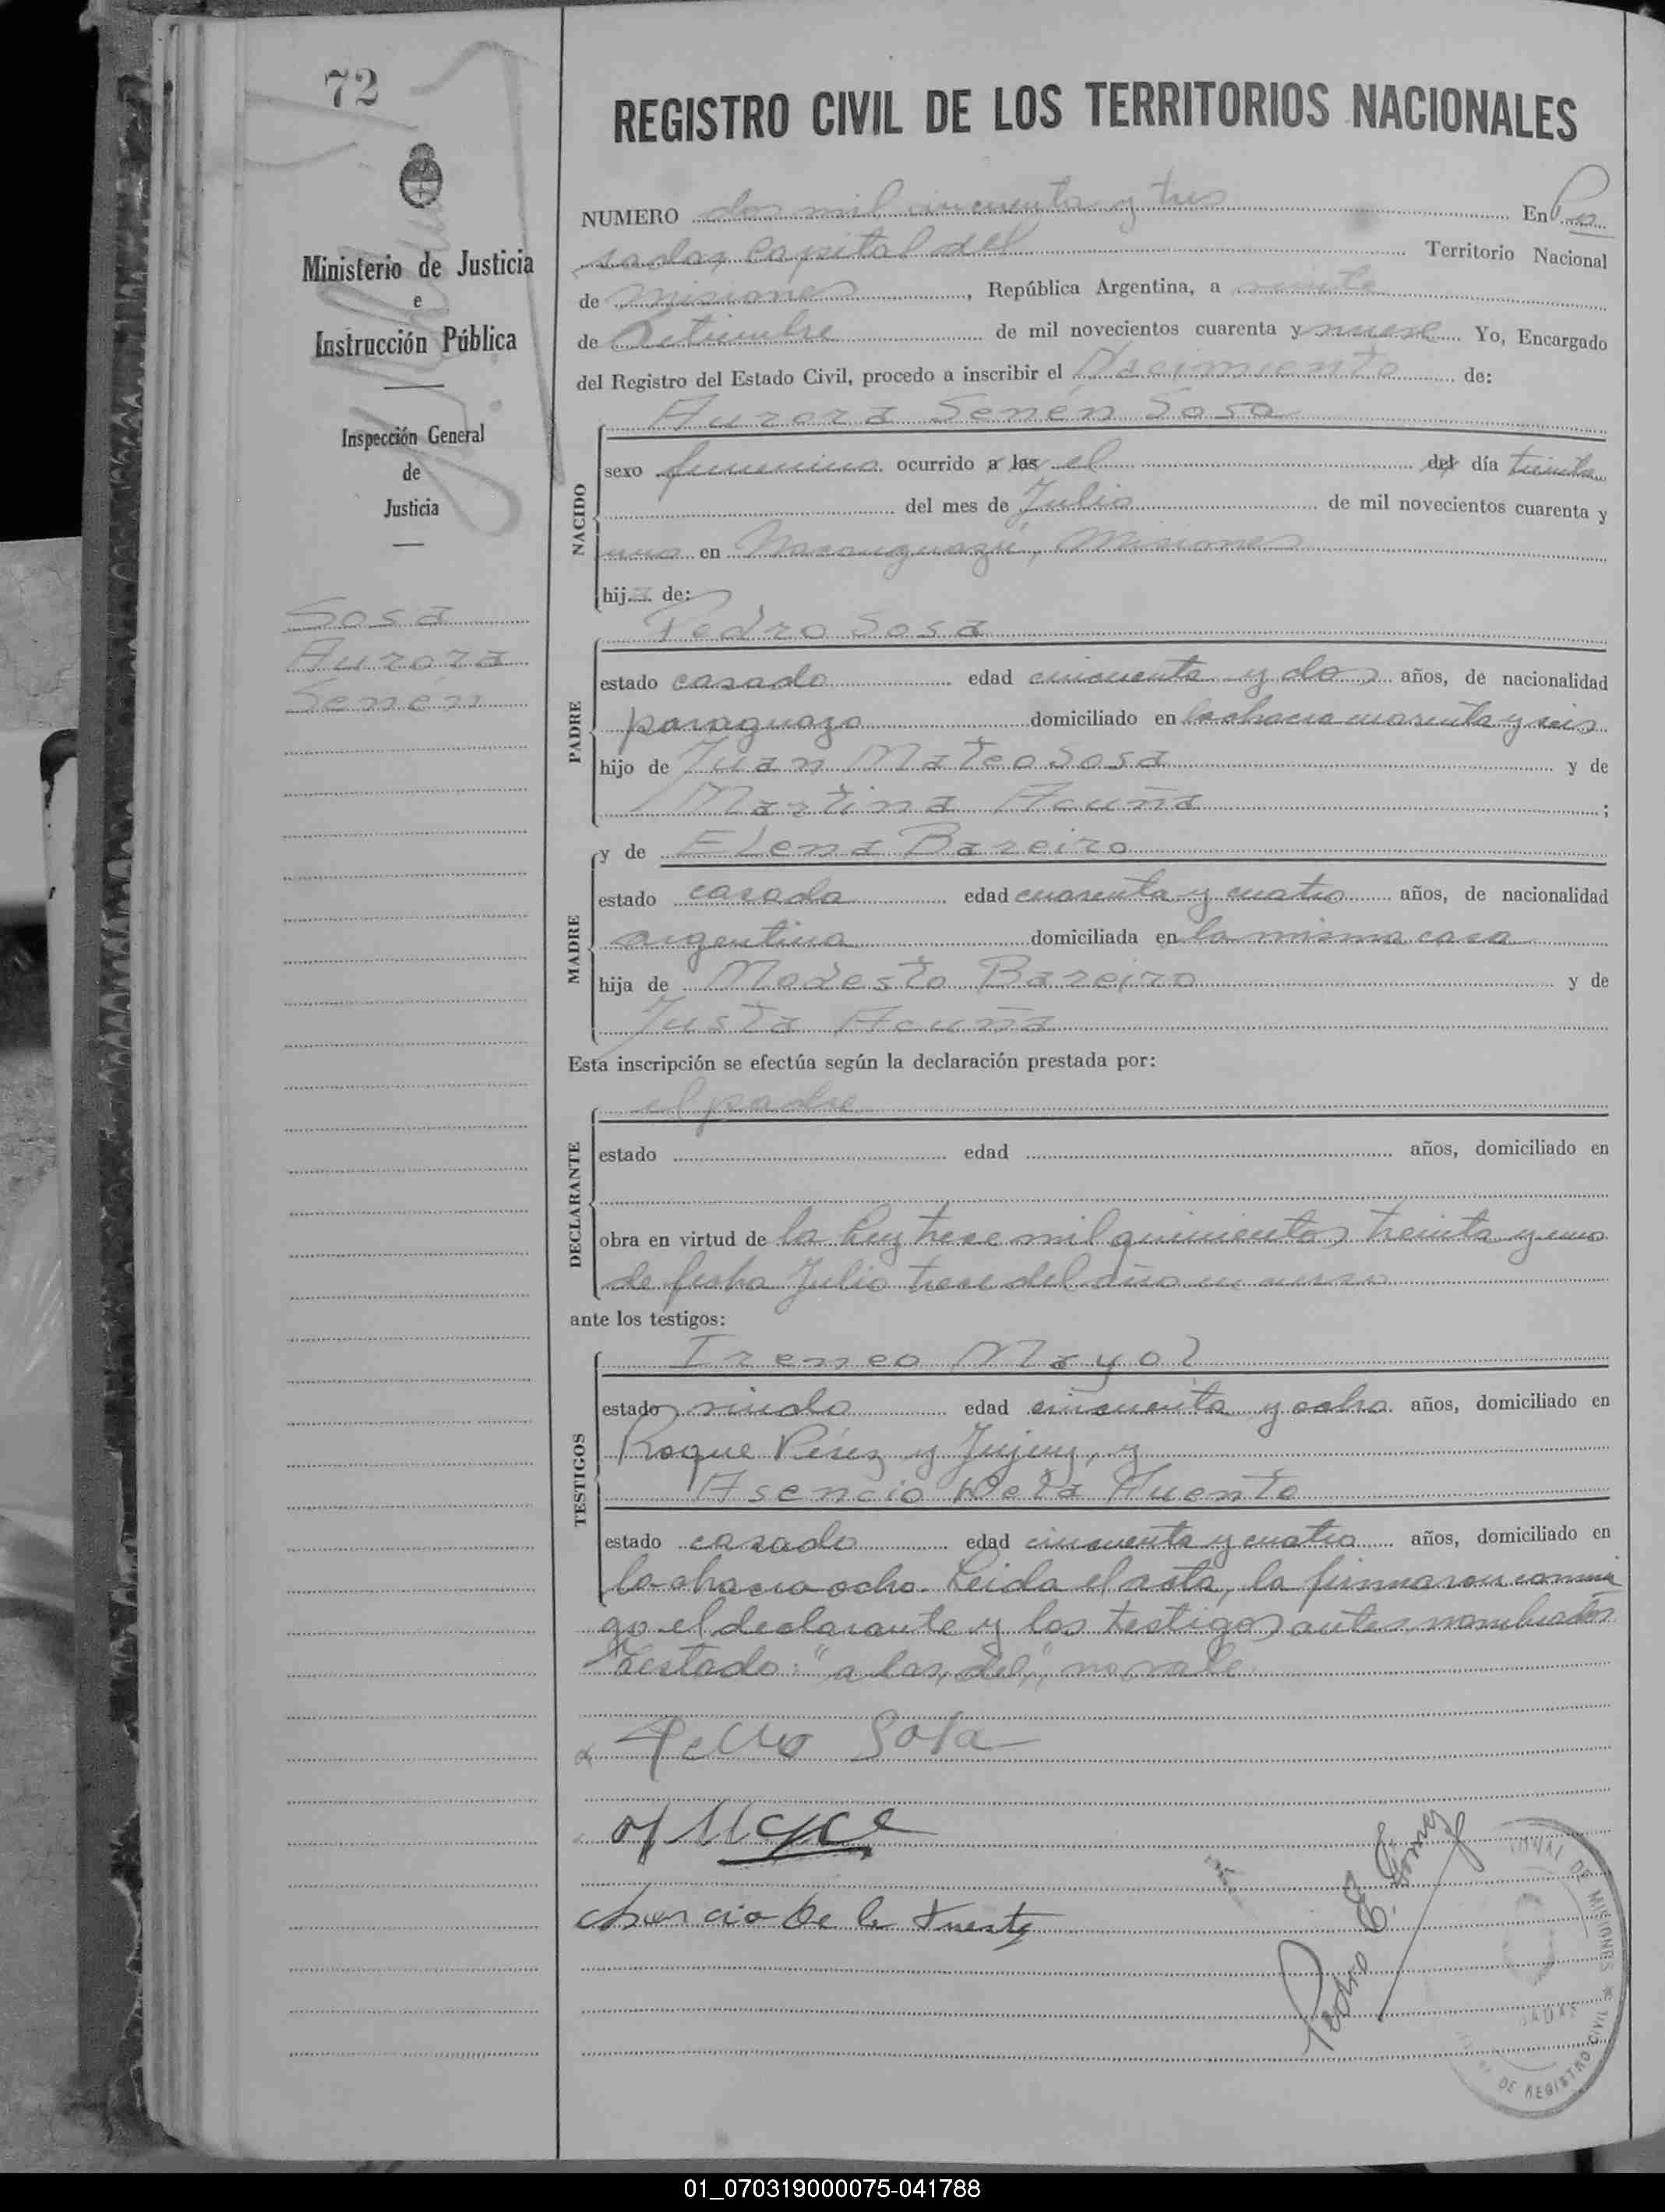 72
Ministerio de Justicia
e
Instrucción Pública
Inspección General
de
Justicia
Sosa
Aurora
Senén
REGISTRO CIVIL DE LOS TERRITORIOS NACIONALES
NUMERO dos mil cincuenta y tres En Po
sadas, Capital del Territorio Nacional
de Misiones, República Argentina, a veinte
de Setiembre de mil novecientos cuarenta y nueve Yo, Encargado
del Registro del Estado Civil, procedo a inscribir el Nacimiento de:
Aurora Senén Sosa
NACIDO
sexo femenino ocurrido a las el del día treinta
del mes de Julio de mil novecientos cuarenta y
uno en Misiones
hija de:
Pedro Sosa
PADRE
estado casado edad cincuenta y dos años, de nacionalidad
paraguaya domiciliado en la chacra cuarenta y seis
hijo de Juan Mateo Sosa y de
Martina Acuña;
y de Elena Bareiro
MADRE
estado casada edad cuarenta y cuatro años, de nacionalidad
argentina domiciliada en la misma casa
hija de Modesto Bareiro y de
Justa Acuña
Esta inscripción se efectúa según la declaración prestada por:
el padre
DECLARANTE
estado edad años, domiciliado en
obra en virtud de la Ley trece mil quinientos treinta y uno
de fecha Julio trece del año en curso
ante los testigos:
Ireneo Mayol
TESTIGOS
estado viudo edad cincuenta y ocho años, domiciliado en
Roque Pérez y Jujuy, y
Asencio De la Fuente
estado casado edad cincuenta y cuatro años, domiciliado en
la chacra ocho. Leida el acta, la firmaron conmi
go el declarante y los testigos antes nombrados
Testado: "a las, del", no vale.
Pedro Sosa
Asencio De la Fuente
Pedro E. Gómez
DE MISIONES * REGISTRO CIVIL
01_070319000075-041788